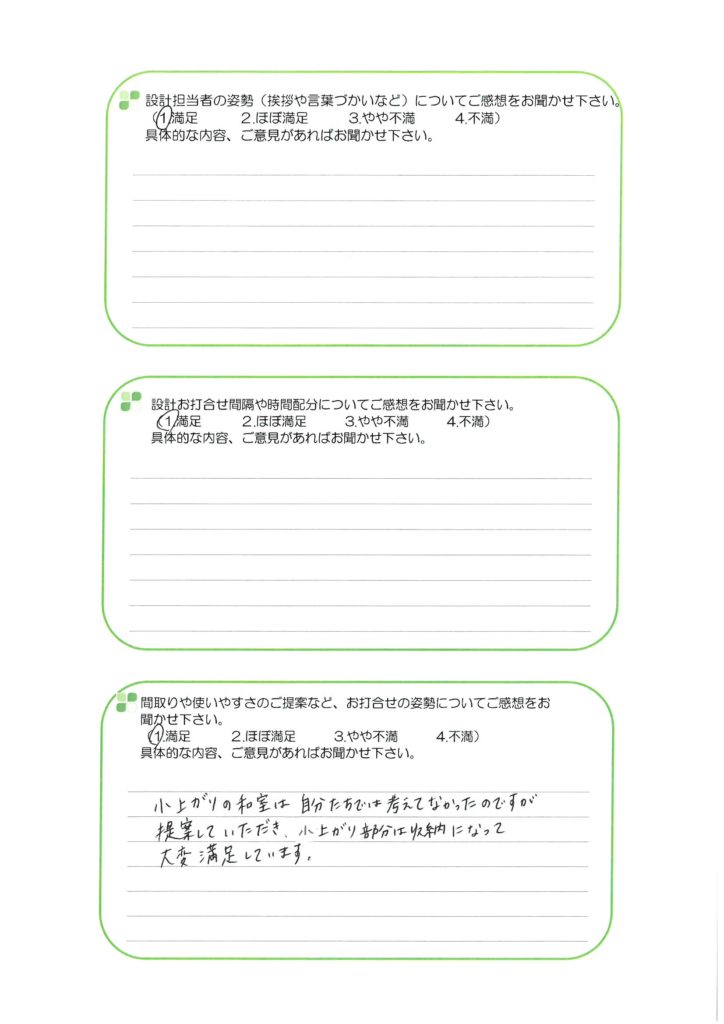 設計担当者の姿勢（挨拶や言葉づかいなど）についてご感想をお聞かせ下さい。
（1.満足　2.ほぼ満足　3.やや不満　4.不満）
具体的な内容、ご意見があればお聞かせ下さい。
設計お打合せ間隔や時間配分についてご感想をお聞かせ下さい。
（1.満足　2.ほぼ満足　3.やや不満　4.不満）
具体的な内容、ご意見があればお聞かせ下さい。
間取りや使いやすさのご提案など、お打合せの姿勢についてご感想をお
聞かせ下さい。
（1.満足　2.ほぼ満足　3.やや不満　4.不満）
具体的な内容、ご意見があればお聞かせ下さい。
小上がりの和室は自分たちでは考えてなかったのですが
提案していただき、小上がり部分は収納になって
大変満足しています。